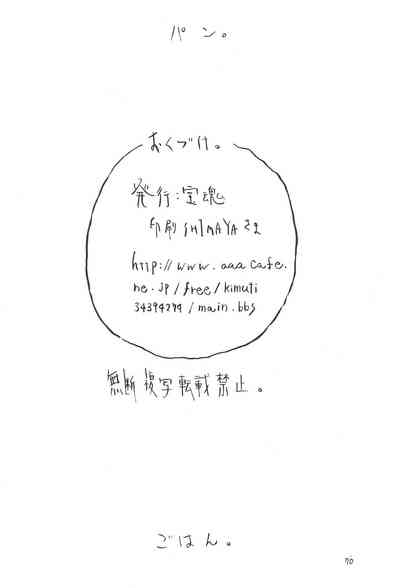 パン。
おくづけ。
発行:宝魂
印刷 SHIMAYA さん
http://www.aaacafe.
ne.jp/free/kimuti
34394294/main.bbs
無断複写転載禁止。
ごはん。
70